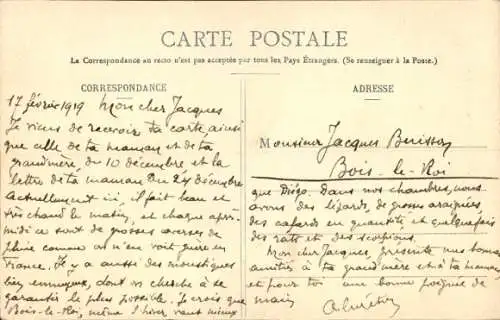 CARTE POSTALE
La Correspondance au recto n'est pas acceptée par tous les Pays Étrangers. (Se renseigner à la Poste.)
CORRESPONDANCE
17 février 1919 Mon cher Jacques
Je viens de recevoir ta carte ainsi
que celle de ta maman et de ta
grandmère, du 10 décembre et la
lettre de ta maman du 24 décembre
Actuellement ici, il fait beau et
très chaud le matin, et chaque après-
midi ce sont de grosses averses de
pluie comme on n'en voit guère en
France. Il y a aussi des moustiques
bien ennuyeux, dont on cherche à se
garantir le plus possible. Je crois que
Bois-le-Roi, même l'hiver, vaut mieux
ADRESSE
Monsieur Jacques
Bois-le-Roi
que Diégo. Dans nos chambres, nous
avons des lézards, de grosses araignées,
des cafards en quantité et quelquefois
des rats et des scorpions.
Mon cher Jacques, présente nos bonnes
amitiés à ta grand mère et à ta maman
et pour toi une bonne poignée de
main